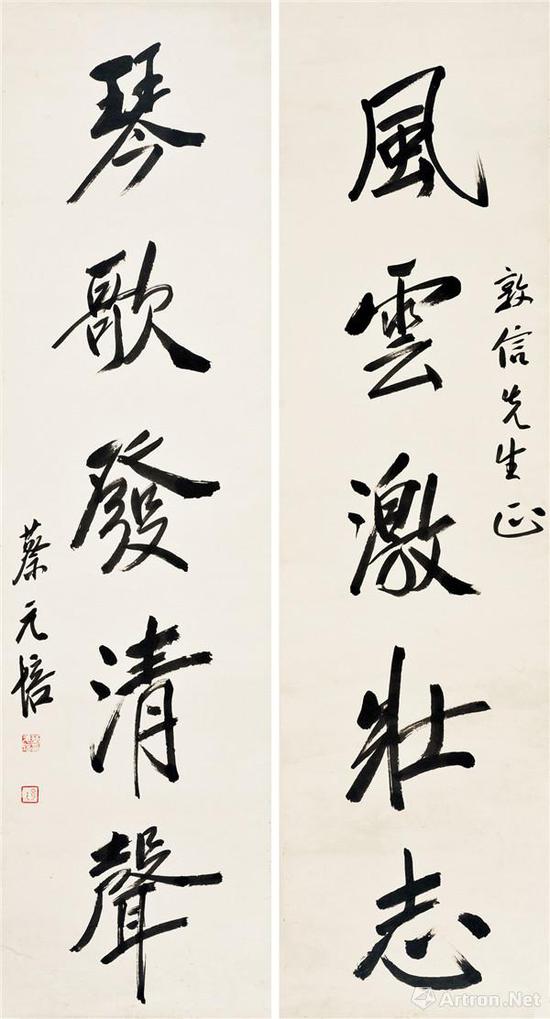 風雲激壯志
敦信先生正
琴歌發清聲
蔡元培
Artron.Net